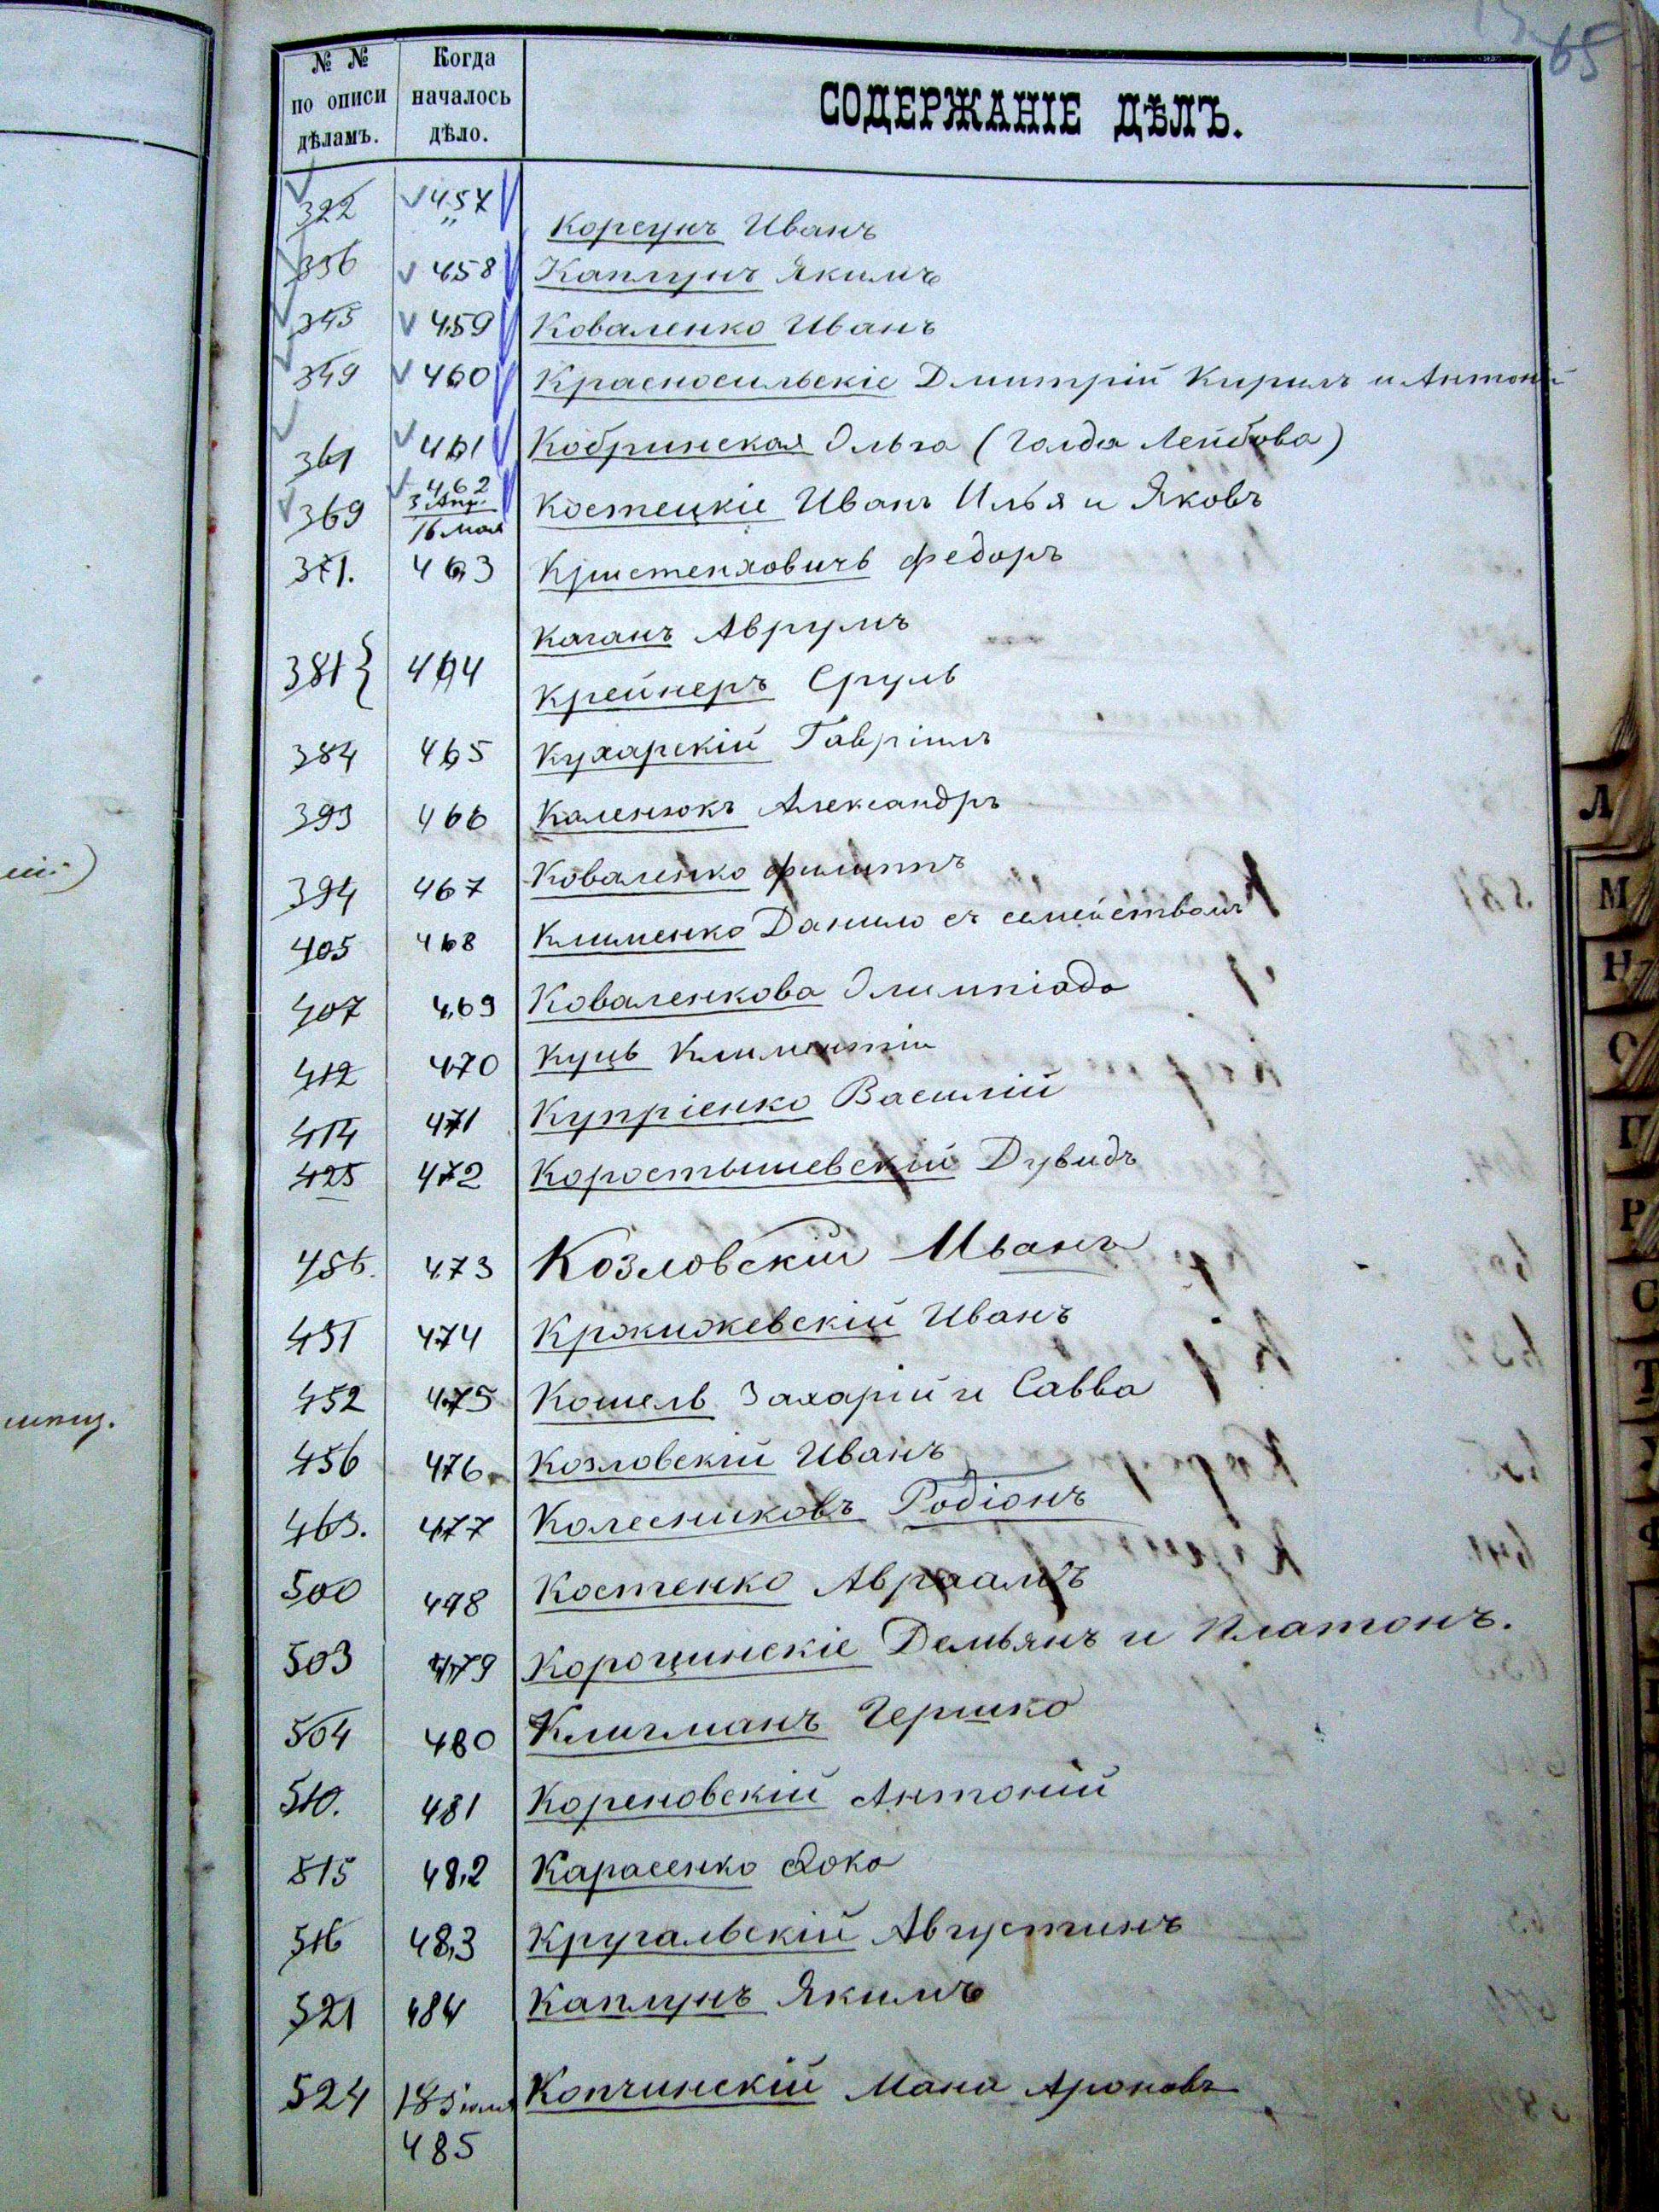 65
№ №
по описи
дѣламъ.
Когда
началось
дѣло.
СОДЕРЖАНІЕ ДѢЛЪ.
322 457 Корсунъ Иванъ
336 458 Каплунъ Якимъ
345 459 Коваленко Иванъ
349 460 Красносильскіе Дмитрій Кирилъ и Антоній
361 461 Кобринская Ольга (Голда Лейбова)
369 462 3 Апр. 16 мая Костецкіе Иванъ Илья и Яковъ
371. 463 Кристенховичъ Федоръ
381 464 Каганъ Аврумъ
Крейнеръ Сруль
384 465 Кухарскій Гавріилъ
393 466 Каленюкъ Александръ
394 467 Коваленко Филиппъ
405 468 Клименко Данило съ семействомъ
407 469 Коваленкова Олимпіада
412 470 Куць Климентій
414 471 Купріенко Василій
425 472 Коростышевскій Дувидъ
456. 473 Козловскій Иванъ
451 474 Кржижевскій Иванъ
452 475 Кошель Захарій и Савва
456 476 Козловскій Иванъ
463. 477 Колесниковъ Родіонъ
500 478 Костенко Авраамъ
503 479 Корощинскіе Демьянъ и Платонъ.
504 480 Клигманъ Гершко
510. 481 Кореновскій Антоній
515 482 Карасенко
516 483 Кругальскій Августинъ
521 484 Каплунъ Якимъ
524 485 Копчинскій Мана Ароновъ
Л
М
Н
О
П
Р
С
Т